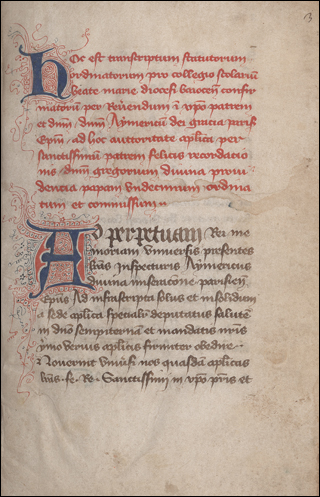 13
Hoc est transcriptum statutorum
ordinatorum pro collegio scolariũ
beate marie diocesĩ baiocen̄ confir
matorũ per Reuendum ĩ xp̄o patrem
et dnm̄ dnm̄ Aymericũ dei gracia paris̃
ep̄m ad hoc auctoritate aplica per
sanctissimũ patrem felicis recordatio
nis dnm̄ gregorium diuina proui
dencia papam vndecimum ordina
tum et commissum
Ad perpetuam Rei me
moriam Vniuersis presentes
lr̄as Inspecturis Aymericus
diuina miseracione parisien̄
Ep̄us Ad infrascripta solus et insolidũ
a sede aplica specialr̄ deputatus salutē
in dn̄o sempiternā et mandatis nr̄is
ymo verius aplicis firmiter obedire
Nouerint vniũsi nos quasdā aplicas
lr̄as fe. Re. Sanctissimi in xp̄o pr̄is et